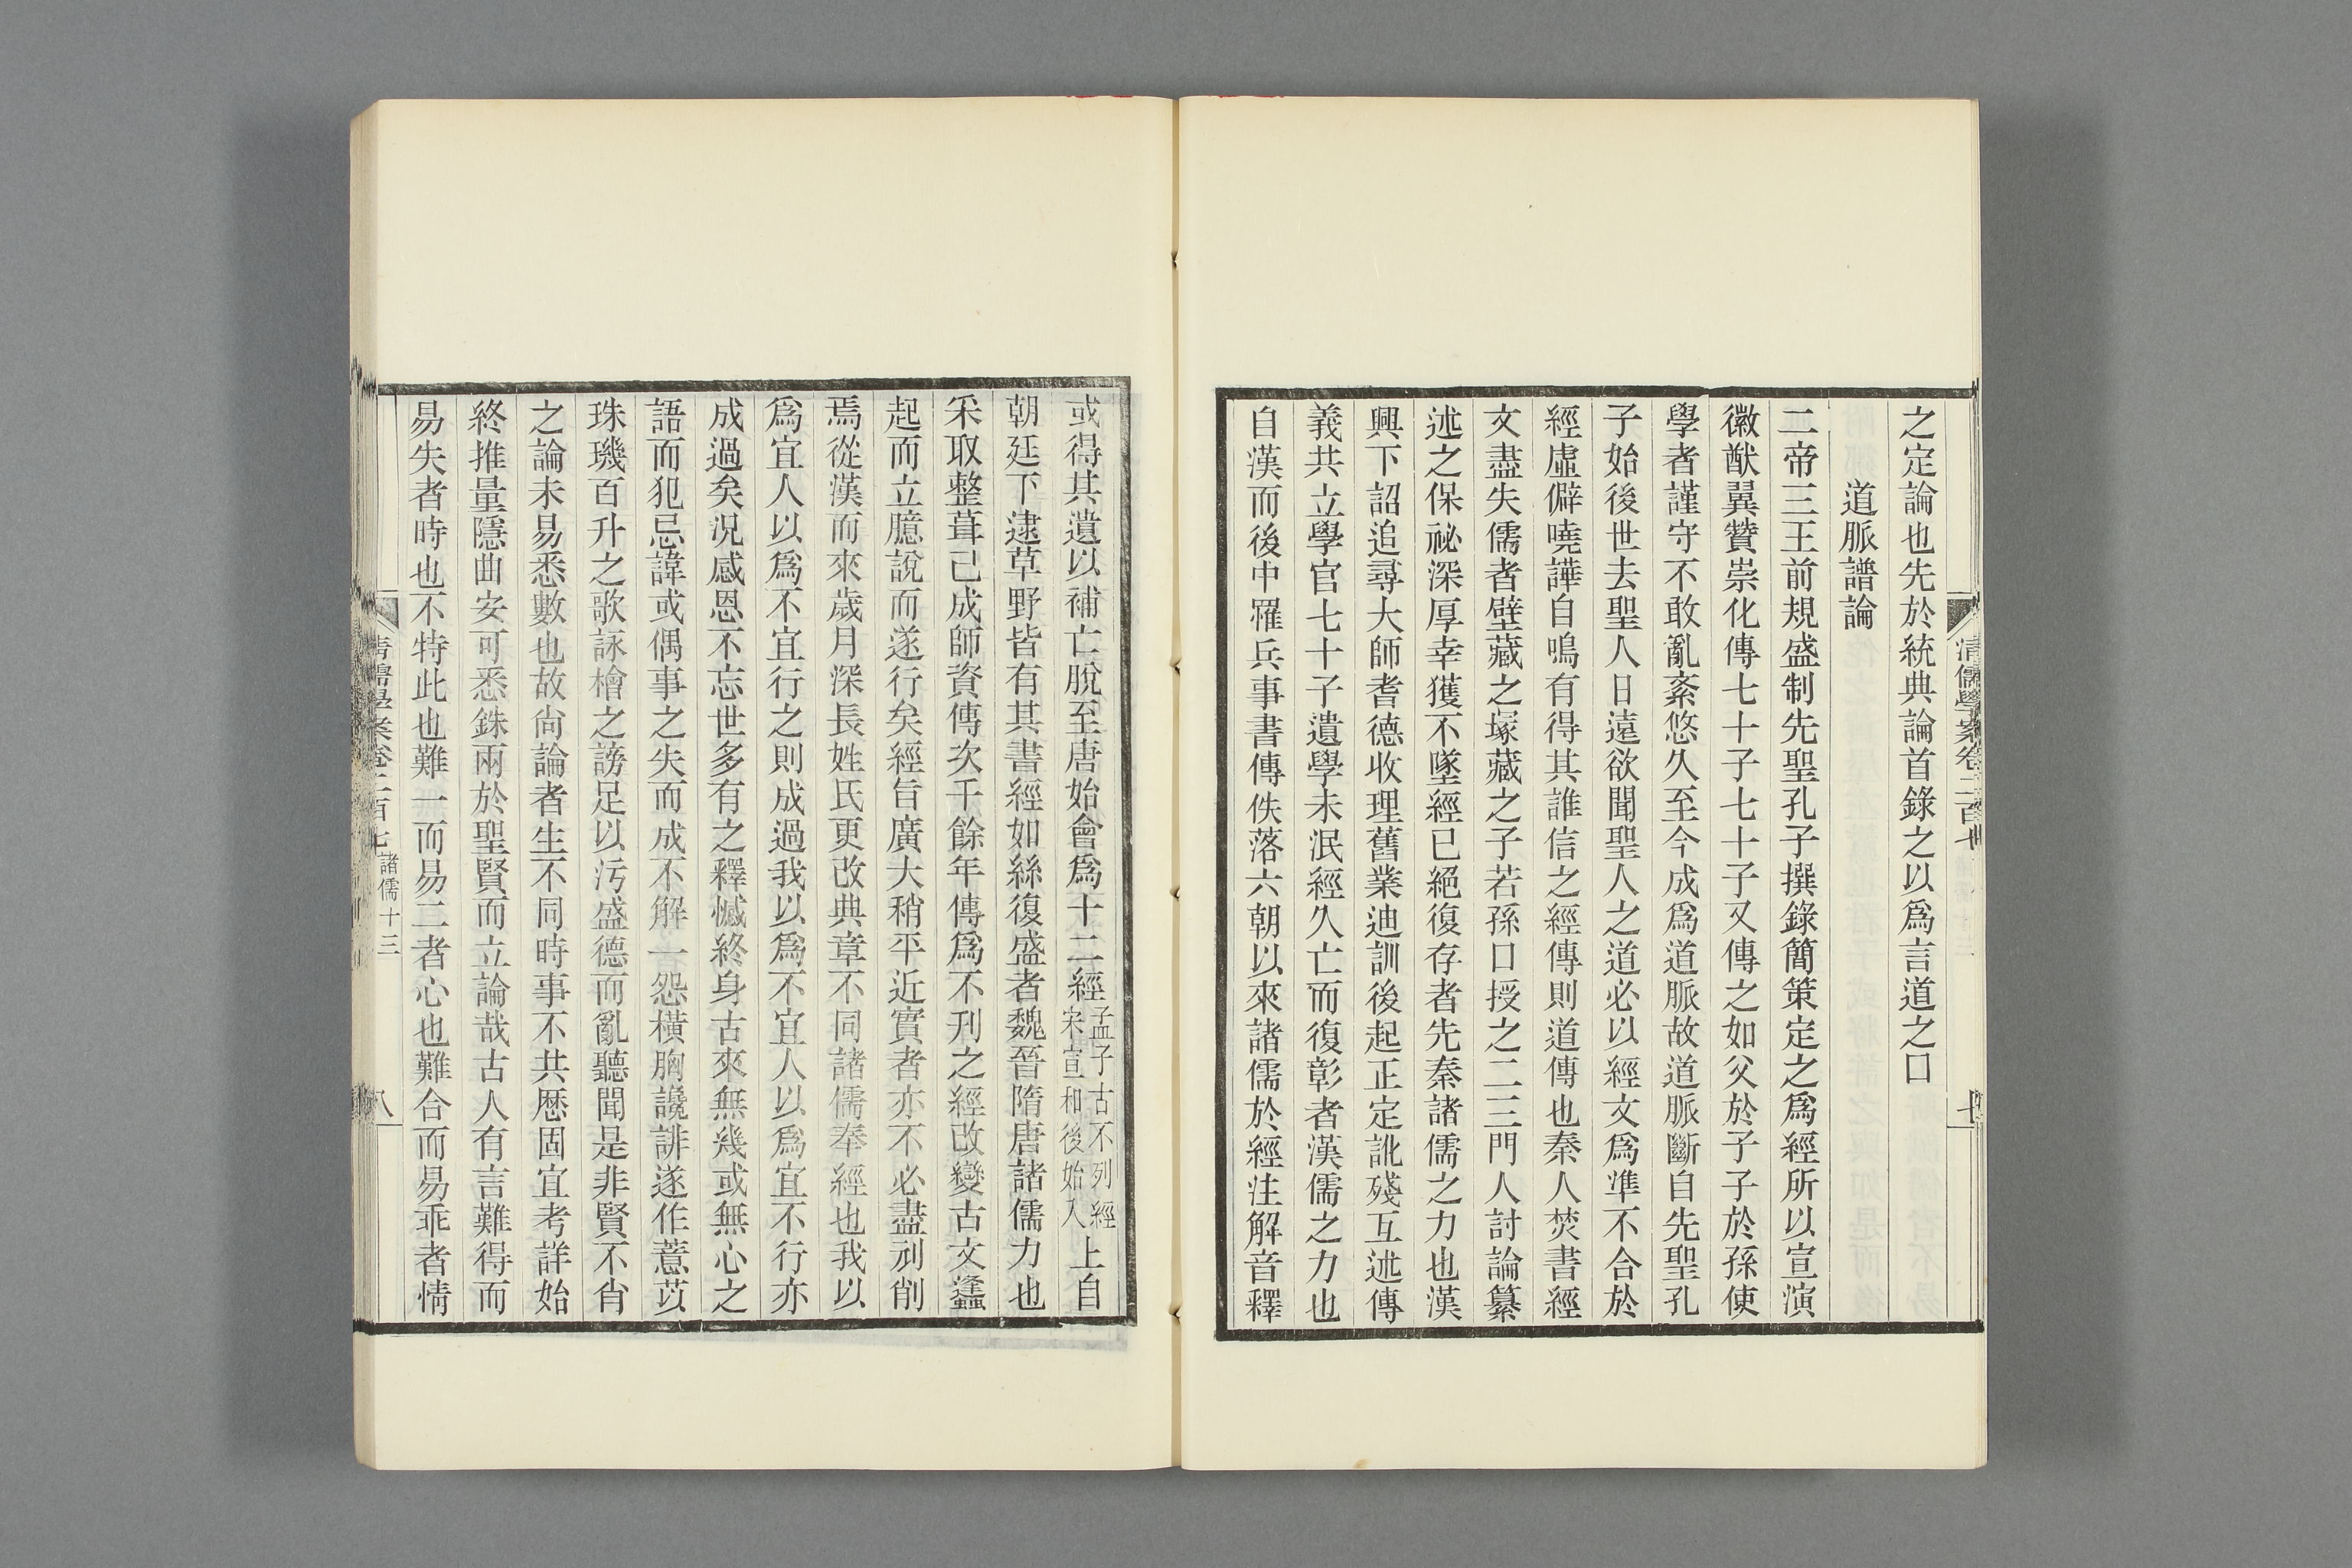 清儒學案卷二百七
七
之定論也先於統典論首錄之以爲言道之口
道脈譜論
二帝三王前規盛制先聖孔子撰錄簡策定之爲經所以宣演
徽猷翼贊崇化傳七十子七十子又傳之如父於子子於孫使
學者謹守不敢亂紊悠久至今成爲道脈故道脈斷自先聖孔
子始後世去聖人日遠欲聞聖人之道必以經文爲準不合於
經虛僻嘵譁自鳴有得其誰信之經傳則道傳也秦人焚書經
文盡失儒者壁藏之塚藏之子若孫口授之二三門人討論纂
述之保祕深厚幸獲不墜經已絕復存者先秦諸儒之力也漢
興下詔追尋大師耆德收理舊業迪訓後起正定訛殘互述傳
義共立學官七十子遺學未泯經久亡而復彰者漢儒之力也
自漢而後中罹兵事書傳佚落六朝以來諸儒於經注解音釋
或得其遺以補亡脫至唐始會爲十二經孟子古不列經宋宣和後始入上自
朝廷下逮草野皆有其書經如絲復盛者魏晉隋唐諸儒力也
采取整葺已成師資傳次千餘年傳爲不刋之經改變古文蠭
起而立臆說而遂行矣經旨廣大稍平近實者亦不必盡刓削
焉從漢而來歲月深長姓氏更改典章不同諸儒奉經也我以
爲宜人以爲不宜行之則成過我以爲不宜人以爲宜不行亦
成過矣況感恩不忘世多有之釋憾終身古來無幾或無心之
語而犯忌諱或偶事之失而成不解一怨橫胸讒誹遂作薏苡
珠璣百升之歌詠檜之謗足以污盛德而亂聽聞是非賢不肖
之論未易悉數也故尙論者生不同時事不共厯固宜考詳始
終推量隱曲安可悉銖兩於聖賢而立論哉古人有言難得而
易失者時也不特此也難一而易二者心也難合而易乖者情
清儒學案卷二百七 諸儒十三
八